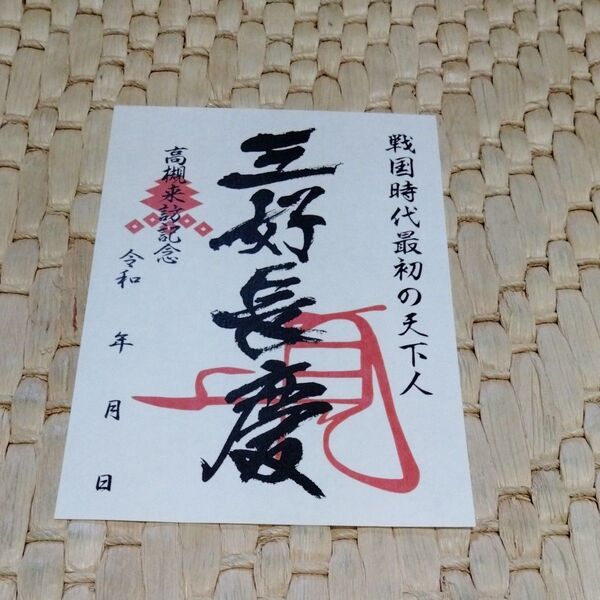 戦国時代最初の天下人
三好長慶
高槻来訪記念
令和　年　月　日